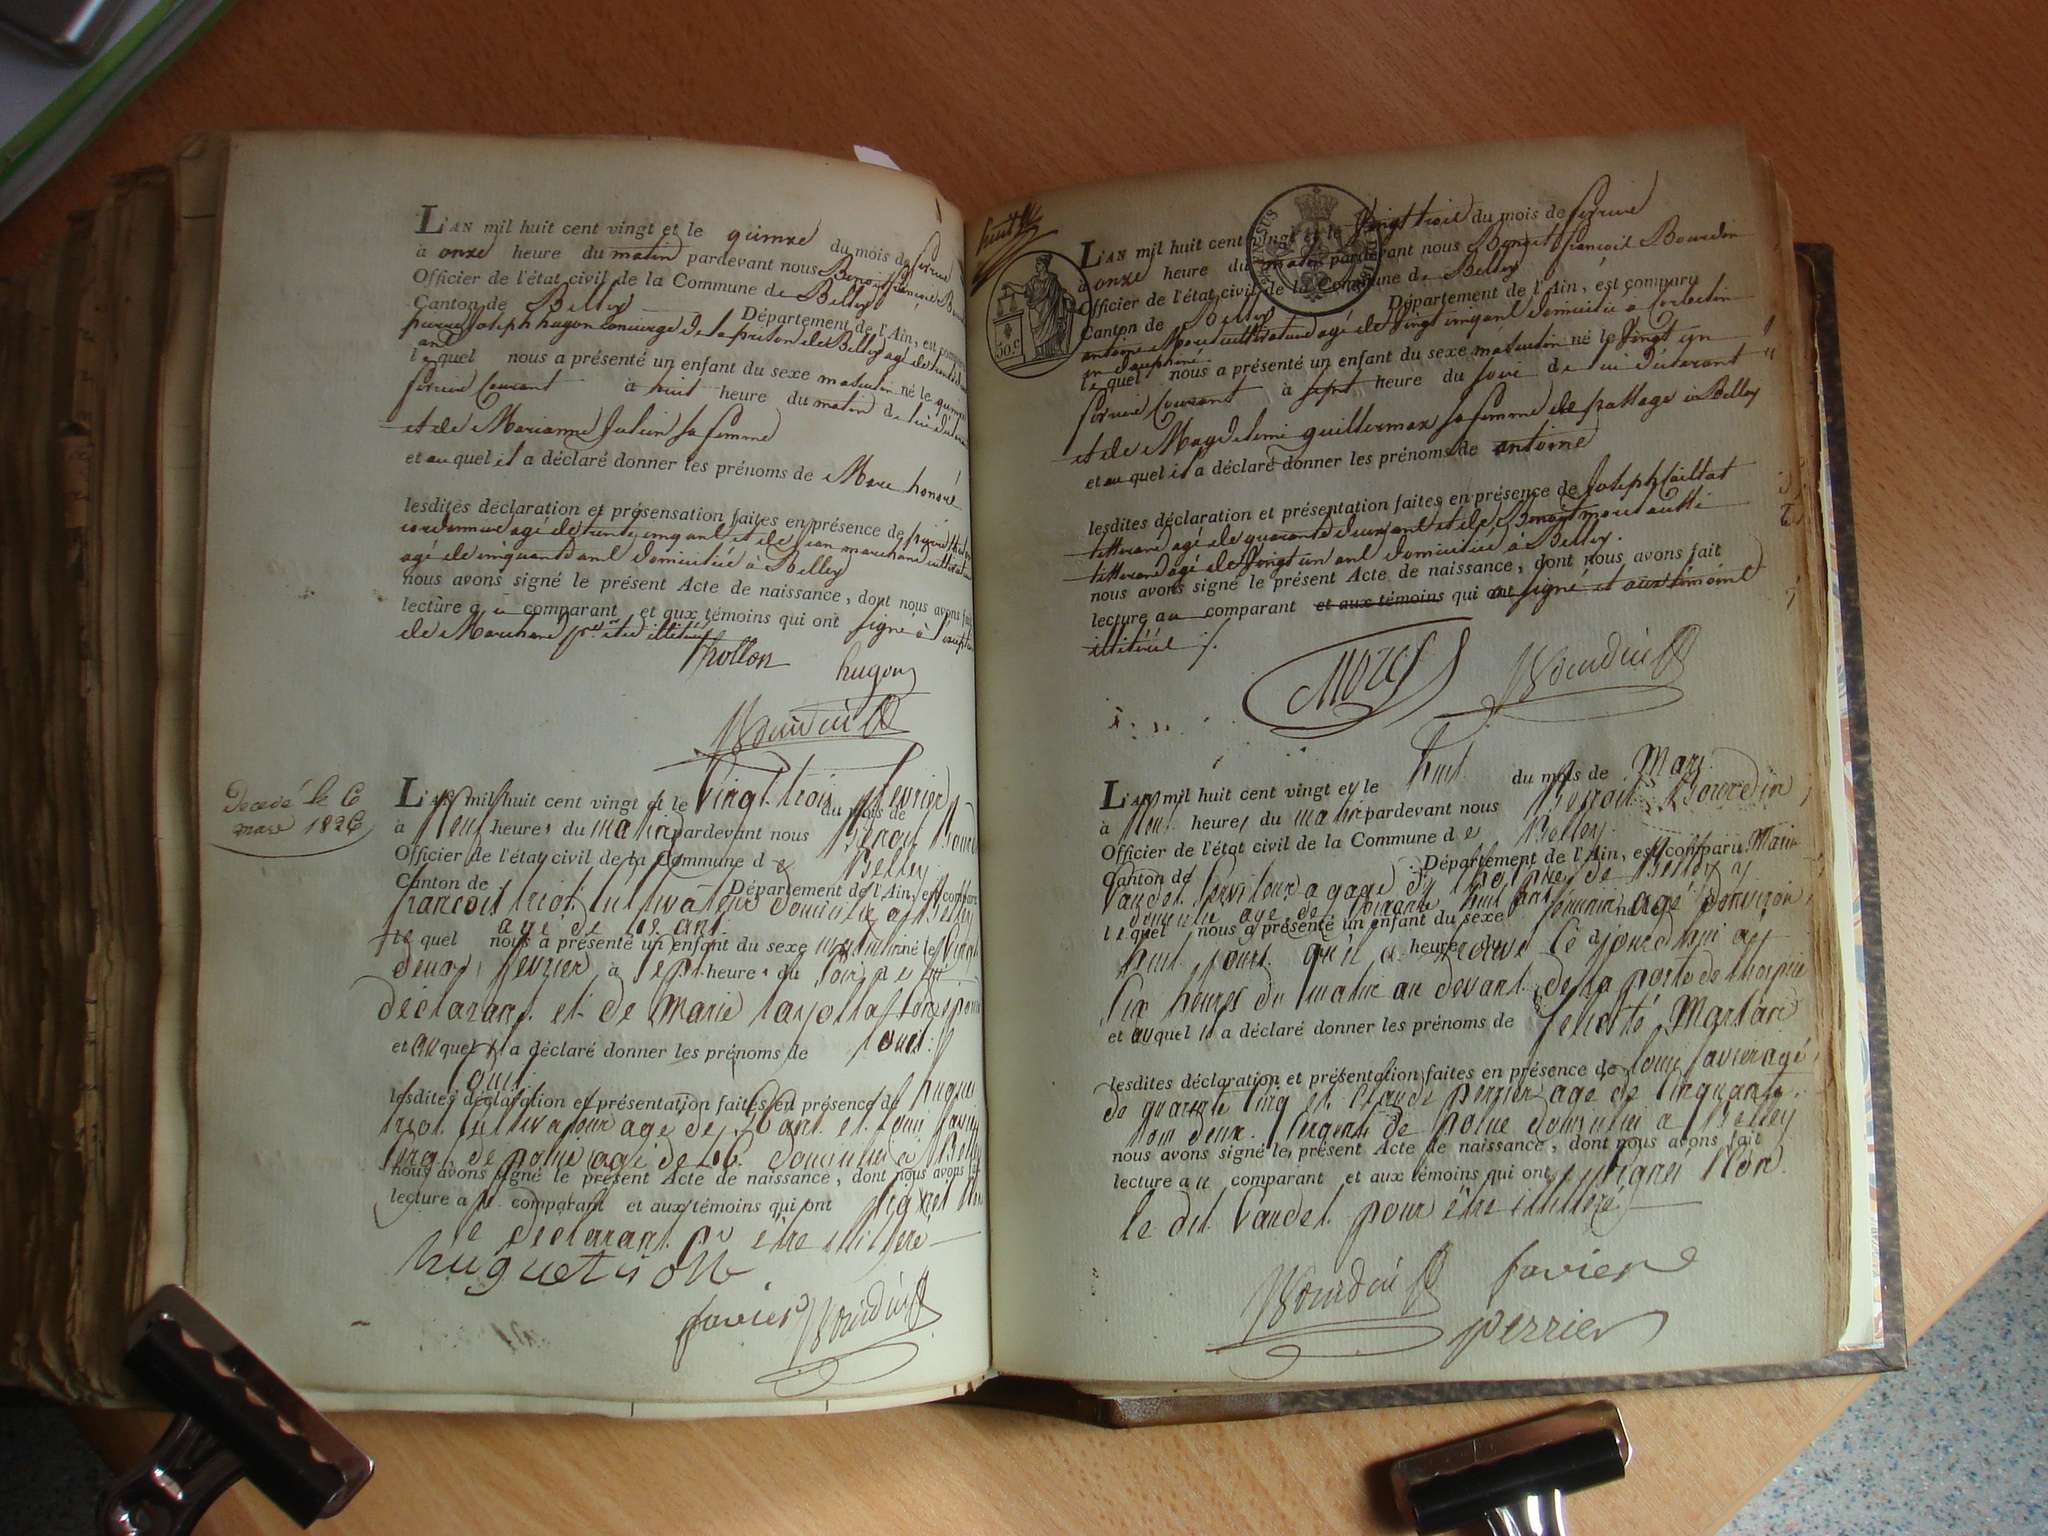 L'AN mil huit cent vingt et le quinze du mois de fevrier
à onze heure du matin pardevant nous Benoit françois
Officier de l'état civil de la Commune de Belley
Canton de Belley Département de l'Ain, est comparu
pierre Joseph hugon concierge de la prison de Belley agé de
ans
lequel nous a présenté un enfant du sexe masculin né le quinze
fevrier Courant à huit heure du matin de lui déclarant
et de Marianne Julien sa femme
et auquel il a déclaré donner les prénoms de Marc honoré
lesdites déclaration et présensation faites en présence de
cordonnier agé de trente cinq ans et de jean marchand cultivateur
agé de cinquante ans domiciliés à Belley
nous avons signé le présent Acte de naissance, dont nous avons fait
lecture au comparant et aux témoins qui ont signé à
de Marchand illitéré
thollon hugon
Bourdin
Decedé le 6
mars 1826
L'AN mil huit cent vingt et le Vingt trois du mois de fevrier
à Neuf heures du matin pardevant nous Benoit
Officier de l'état civil de la Commune de Belley
Canton de Département de l'Ain, est comparu
françois cultivateur domicilié a Belley
agé de ans
lequel nous a présenté un enfant du sexe masculin né le vingt
deux fevrier à sept heures du soir de lui
déclarant et de Marie
et auquel il a déclaré donner les prénoms de Louis
Louis
lesdites déclaration et présentation faites en présence de hugues
cultivateur agé de ans et Louis favier
de police agé de 46 domicilié a Belley
nous avons signé le présent Acte de naissance, dont nous avons fait
lecture au comparant et aux témoins qui ont signé Non
le declarant pr être illitéré
favier Bourdin
huit
50 c.
L'AN mil huit cent vingt et le Vingt trois du mois de fevrier
à onze heure du matin pardevant nous Benoit françois Bourdin
Officier de l'état civil de la Commune de Belley
Canton de Belley Département de l'Ain, est comparu
antoine agé de Vingt cinq ans domicilié à
en dauphiné
lequel nous a présenté un enfant du sexe masculin né le Vingt un
fevrier Courant à sept heure du soir de lui déclarant
et de Magdeleine guillermax sa femme de passage à Belley
et auquel il a déclaré donner les prénoms de antoine
lesdites déclaration et présentation faites en présence de Joseph
tisserand agé de quarante deux ans et de Benoit
tisserand agé de Vingt un ans domiciliés à Belley.
nous avons signé le présent Acte de naissance, dont nous avons fait
lecture au comparant et aux témoins qui ont signé et aux témoins
illitérés
Bourdin
L'AN mil huit cent vingt et le huit du mois de Mars
à Neuf heures du matin pardevant nous Benoit Bourdin
Officier de l'état civil de la Commune de Belley
Canton de Département de l'Ain, est comparu
Vaudet serviteur a gage de l'hospice de Belley y
domicilié agé de soixante huit ans
lequel nous a présenté un enfant du sexe féminin agé d'environ
huit jours qu'il a trouvé ce jourd'hui a
six heures du matin au devant de la porte de l'hospice
et auquel il a déclaré donner les prénoms de felicité
lesdites déclaration et présentation faites en présence de Louis favier agé
de quarante cinq et Claude perrier agé de cinquante
tous deux sergents de police domiciliés a Belley
nous avons signé le présent Acte de naissance, dont nous avons fait
lecture au comparant et aux témoins qui ont signé Non
le dit Vaudet pour être illitéré
Bourdin favier
perrier